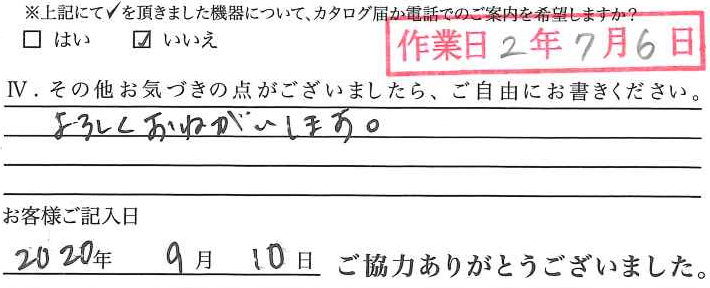 ※上記にて✓を頂きました機器について、カタログ届か電話でのご案内を希望しますか?
□ はい ☑ いいえ
作業日 2年7月6日
Ⅳ.その他お気づきの点がございましたら、ご自由にお書きください。
よろしくおねがいします。
お客様ご記入日
2020年 9月 10日 ご協力ありがとうございました。